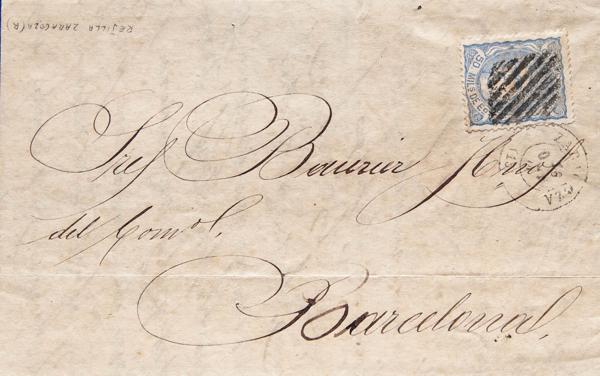 REJILLA ZARAGOZA (R)
50 MILS DE ES
Sres Bourier Hno
del Comol,
Barcelona,